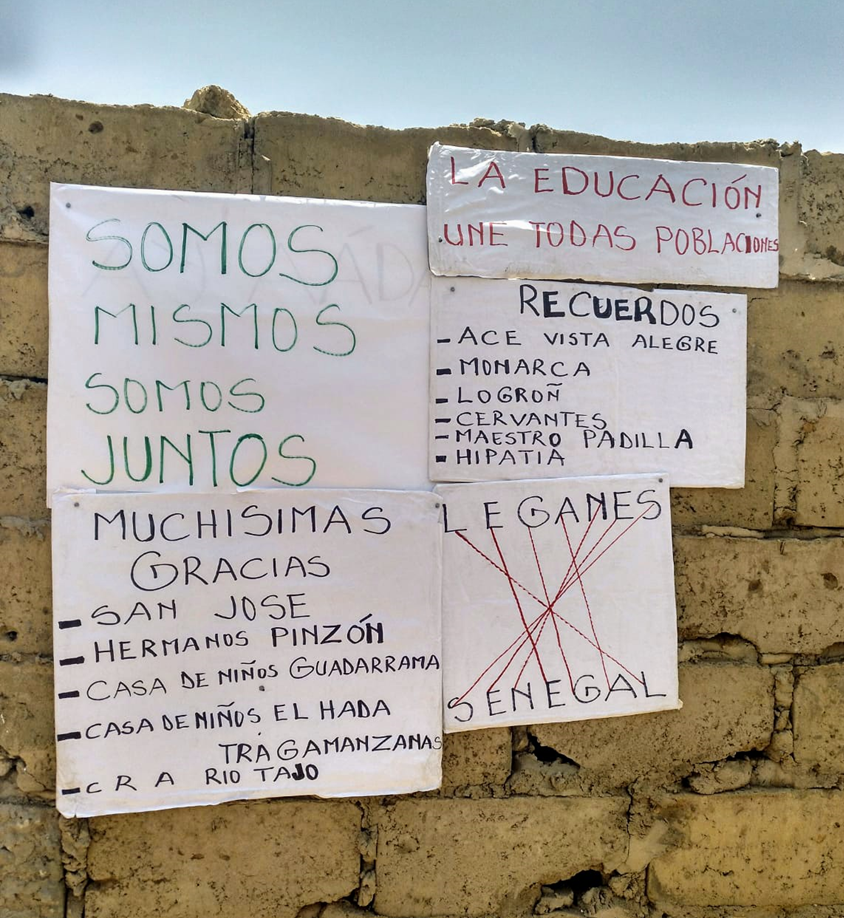 SOMOS
MISMOS
SOMOS
JUNTOS
LA EDUCACIÓN
UNE TODAS POBLACIONES
RECUERDOS
- ACE VISTA ALEGRE
- MONARCA
- LOGROÑ
- CERVANTES
- MAESTRO PADILLA
- HIPATIA
MUCHISIMAS
GRACIAS
- SAN JOSE
- HERMANOS PINZÓN
- CASA DE NIÑOS GUADARRAMA
- CASA DE NIÑOS EL HADA
TRAGAMANZANAS
- C R A RIO TAJO
LEGANES
SENEGAL